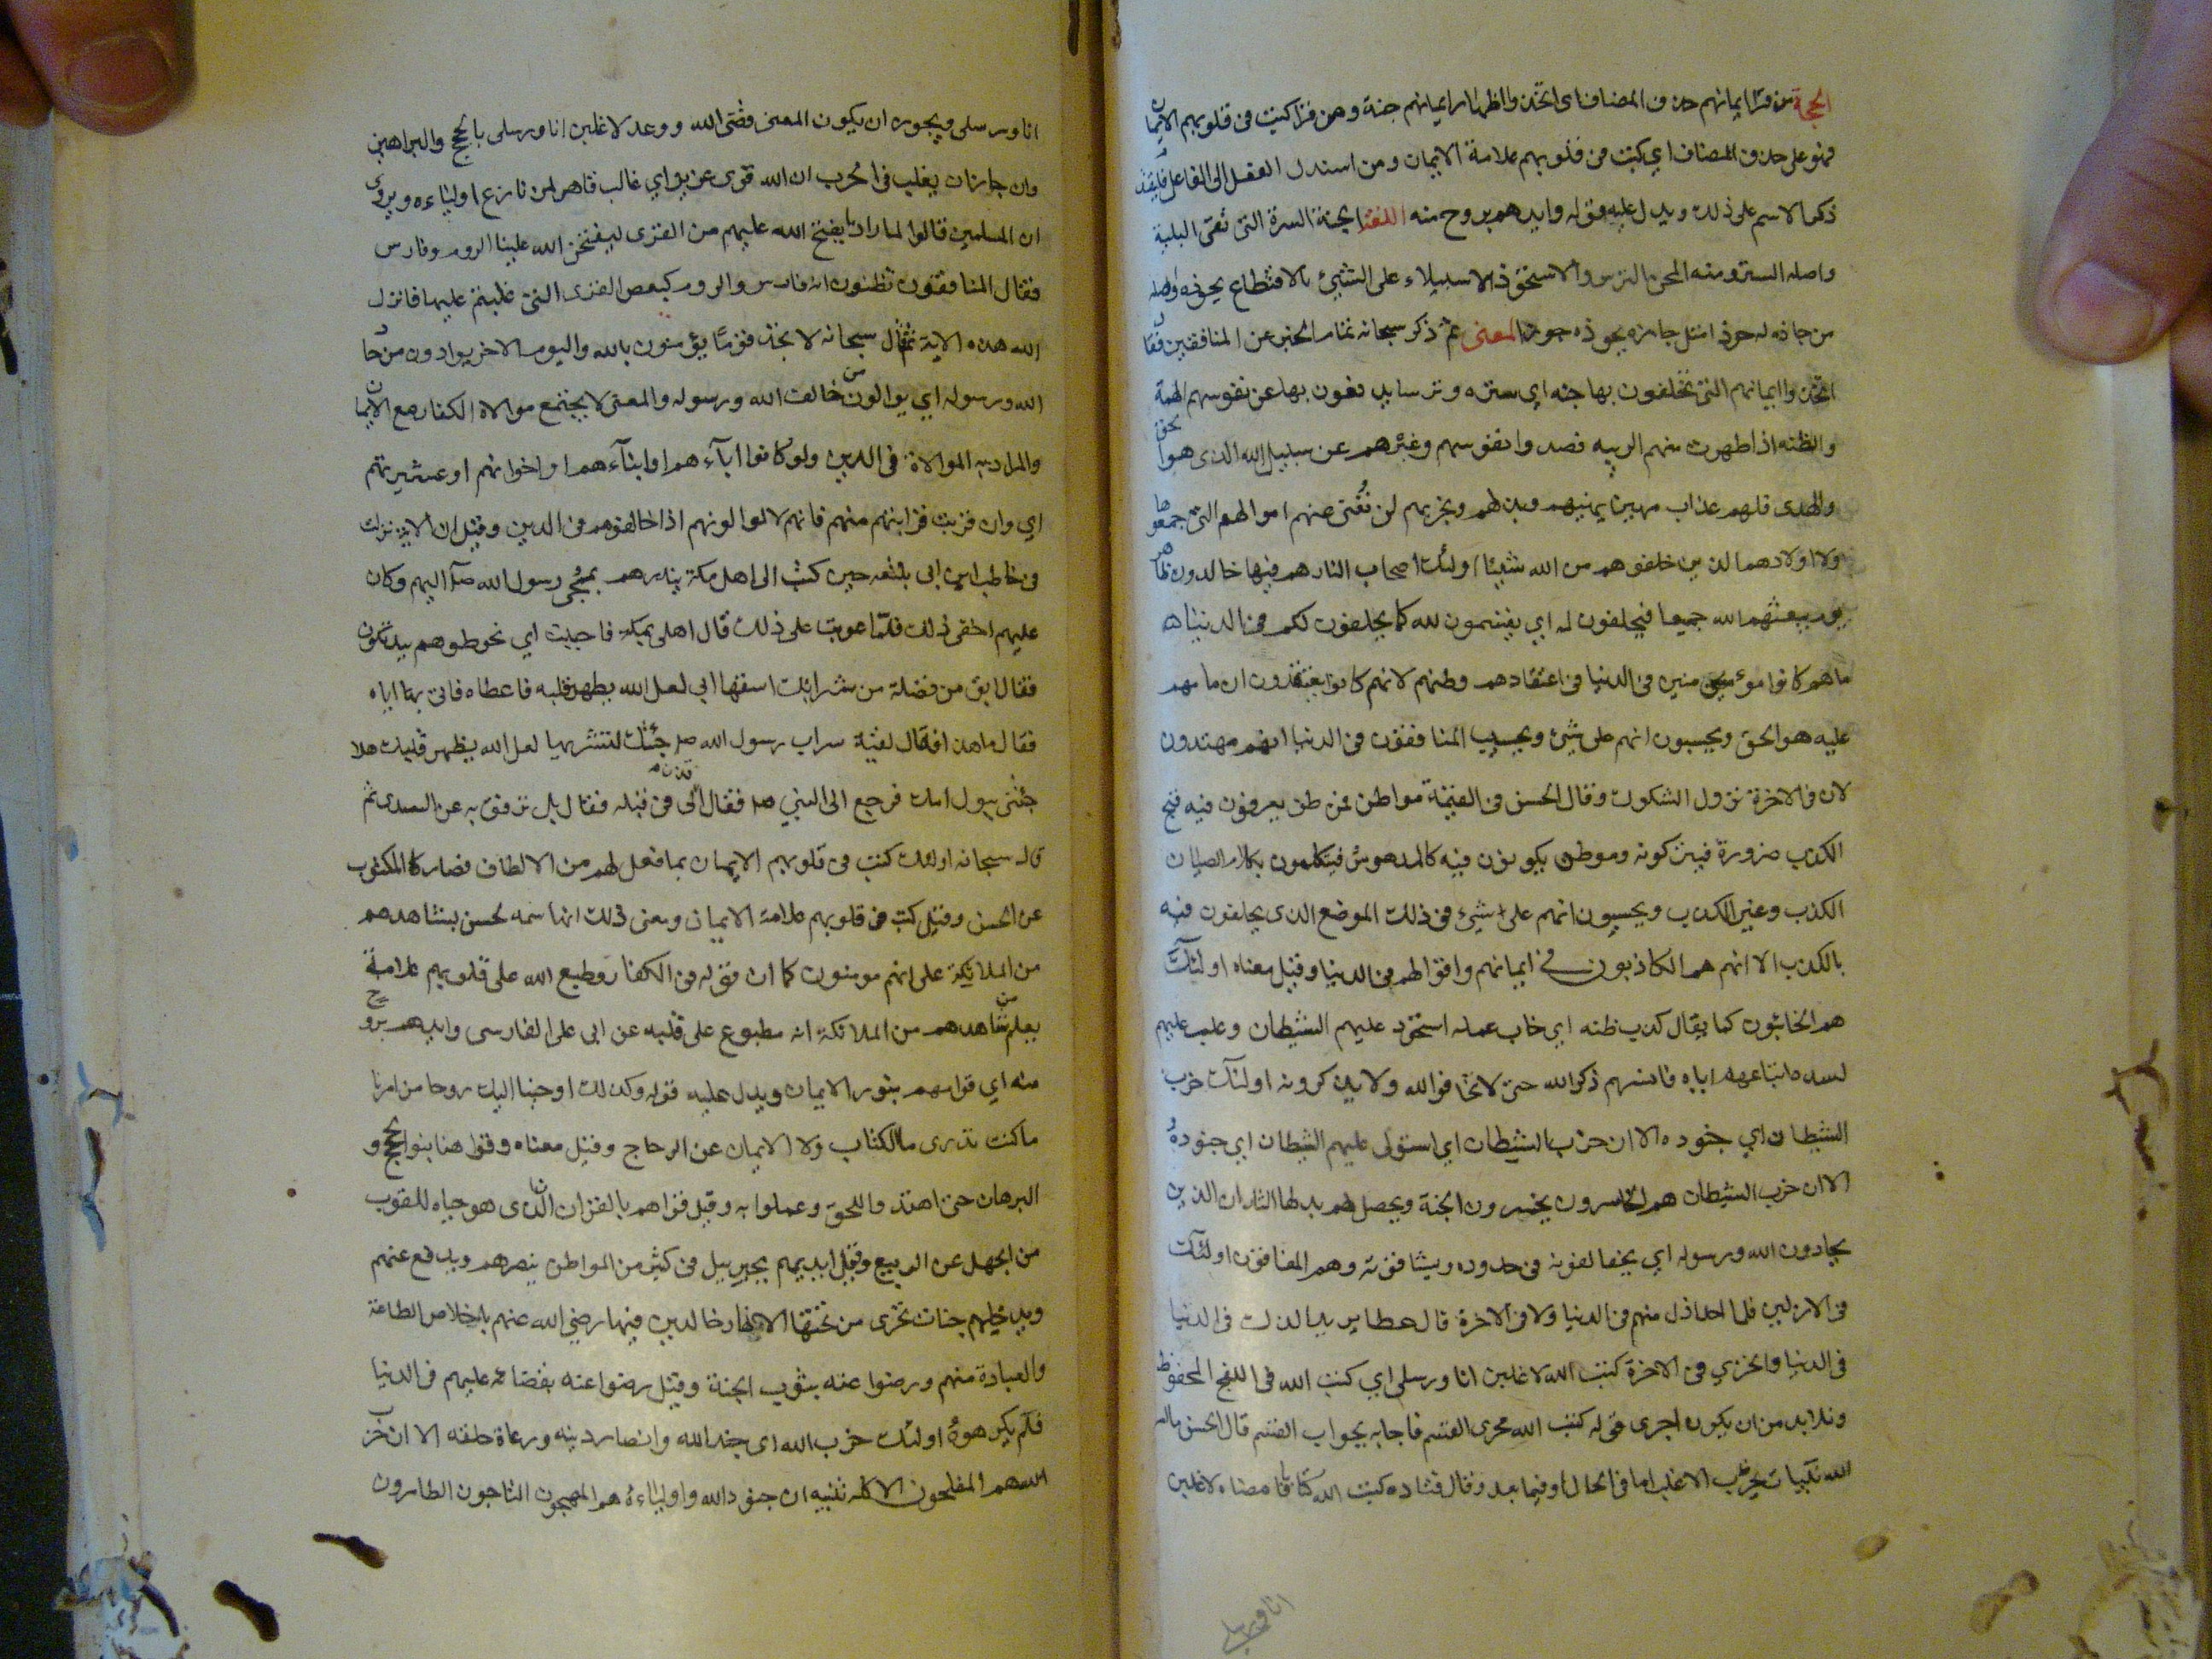 الحجة من قرأ ايمانهم حذف المضاف اي اتخذوا اظهار ايمانهم جنة ومن قرأ كتب في قلوبهم الايمان
فهو على حذف المضاف اي كتب في قلوبهم علامة الايمان ومن اسند الفعل الى الفاعل فلتقدم
ذكر الاسم على ذلك ويدل عليه قوله وايدهم بروح منه اللغة الجنة السترة التي تقي البلية
واصله الستر ومنه المجن الترس والاستحواذ الاستيلاء على الشيئ بالاقتطاع يحوذه واصله
من حاذه له حوذا مثل جازه يحوذه حوذا المعنى ثم ذكر سبحانه تمام الخبر عن المنافقين فقا
اتخذوا ايمانهم التي يحلفون بها جنه اي ستره وترسا يدفعون بها عن نفوسهم التهمة
والظنه اذا ظهرت منهم الريبه فصدوا نفوسهم وغيرهم عن سبيل الله الذي هو الحق
والهدى فلهم عذاب مهين يهينهم ويذلهم ويخزيهم لن تغنى عنهم اموالهم التي جمعوها
ولا اولادهم الذين خلفوهم من الله شيئا اولئك اصحاب النار هم فيها خالدون ظاهر
يوم يبعثهم الله جميعا فيحلفون له اي يقسمون لله كما يحلفون لكم في الدنيا
ما هم كانوا مؤمنين في الدنيا في اعتقادهم وظنهم لانهم كانوا يعتقدون ان ما هم
عليه هو الحق ويحسبون انهم على شيئ ويحسب المنافقون في الدنيا انهم مهتدون
لان في الاخرة تزول الشكوك وقال الحسن في القيمة مواطن فموطن يعرفون فيه قبح
الكذب ضرورة فيتركونه وموطن يكونون فيه كالمدهوش فيتكلمون بكلام الصبيان
الكذب وغير الكذب ويحسبون انهم على شيئ في ذلك الموضع الذي يحلفون فيه
بالكذب الا انهم هم الكاذبون في ايمانهم واقوالهم في الدنيا وقيل معناه اولئك
هم الخائبون كما يقال كذب ظنه اي خاب عمله استحوذ عليهم الشيطان وغلب عليهم
اياه فانسهم ذكر الله حتى لا يخافوا الله ولا يذكرونه اولئك حزب
الشيطان اي جنوده الا ان حزب الشيطان اي استولى عليهم الشيطان اي جنوده
الا ان حزب الشيطان هم الخاسرون يخسرون الجنة ويحصل لهم بدلها النار ان الذين
يحادون الله ورسوله اي يخالفونه في حدوده ويشاقونه وهم المنافقون اولئك
في الاذلين فلا احد اذل منهم في الدنيا ولا في الاخرة قال عطا يريد الذل في الدنيا
في الدنيا والخزي في الاخرة كتب الله لاغلبن انا ورسلي اي كتب الله في اللوح المحفوظ
وفلا بد من ان يكون اجرى قوله كتب الله مجرى القسم فاجابه بجواب القسم قال الحسن ما امر
الله نبيا بحرب الا غلب اما في الحال او فيما بعد وقال قتاده كتب الله كتابا فامضاه لاغلبن
انا ورسلي
انا ورسلي ويجوز ان يكون المعنى قضى الله ووعد لاغلبن انا ورسلي بالحجج والبراهين
وان جاز ان يغلب في الحرب ان الله قوي عزيز اي غالب قاهر لمن نازع اولياءه ويروى
ان المسلمين قالوا لما راوا ما يفتح الله عليهم من القرى ليفتحن الله علينا الروم وفارس
فقال المنافقون تظنون ان فارس والروم كبعض القرى التي غلبتم عليها فانزل
الله هذه الاية ثم قال سبحانه لا تجد قوما يؤمنون بالله واليوم الاخر يوادون من حاد
الله ورسوله اي يوالون من خالف الله ورسوله والمعنى لا يجتمع موالاة الكفار مع الايمان
والمراد به الموالاة في الدين ولو كانوا اباءهم او ابناءهم او اخوانهم او عشيرتهم
اي وان قربت قرابتهم منهم فانهم لا يوالونهم اذا خالفوهم في الدين وقيل ان الاية نزلت
في حاطب بن ابي بلتعه حين كتب الى اهل مكة ينذرهم بمجئ رسول الله صلى اليهم وكان
عليهم اخفى ذلك فلما عوتب على ذلك قال اهلي بمكة فاحببت اي تحوطوهم بيد تكون
فقال ابق من فضلة من شرابك اسقها ابي لعل الله يطهر قلبه فاعطاه فاتى بها اباه
فقال ما هذا فقال بقية شراب رسول الله صلى جئتك لتشربها لعل الله يطهر قلبك هلا
جئتني ببول امك فرجع الى النبي صلى فقال ائذن لي في قتله فقال بل ترفق به عن السدي ثم
قال سبحانه اولئك كتب في قلوبهم الايمان بما فعل لهم من الالطاف فصار كالمكتوب
عن الحسن وقيل كتب في قلوبهم علامة الايمان ومعنى ذلك انها سمه لمن يشاهدهم
من الملائكة على انهم مومنون كما ان قوله في الكفار وطبع الله على قلوبهم علامة
يعلم من شاهدهم من الملائكة انه مطبوع على قلبه عن ابي علي الفارسي وايدهم بروح
منه اي قواهم بنور الايمان ويدل عليه قوله وكذلك اوحينا اليك روحا من امرنا
ما كنت تدري ما الكتاب ولا الايمان عن الزجاج وقيل معناه وقواهم بنور الحجج و
البرهان حتى اهتدوا للحق وعملوا به وقيل قواهم بالقران الذي هو حياه للقلوب
من الجهل عن الربيع وقيل ايديهم بجبرييل في كثير من المواطن ينصرهم ويدفع عنهم
ويدخلهم جنات تجري من تحتها الانهار خالدين فيها رضي الله عنهم باخلاص الطاعة
والعبادة منهم ورضوا عنه بثواب الجنة وقيل رضوا عنه بقضائه عليهم في الدنيا
فلم يكرهوه اولئك حزب الله اي جند الله وانصار دينه ورعاة خلقه الا ان حزب
الله هم المفلحون الا كلمه تنبيه ان جنود الله واولياءه هم المفلحون الناجون الظافرون